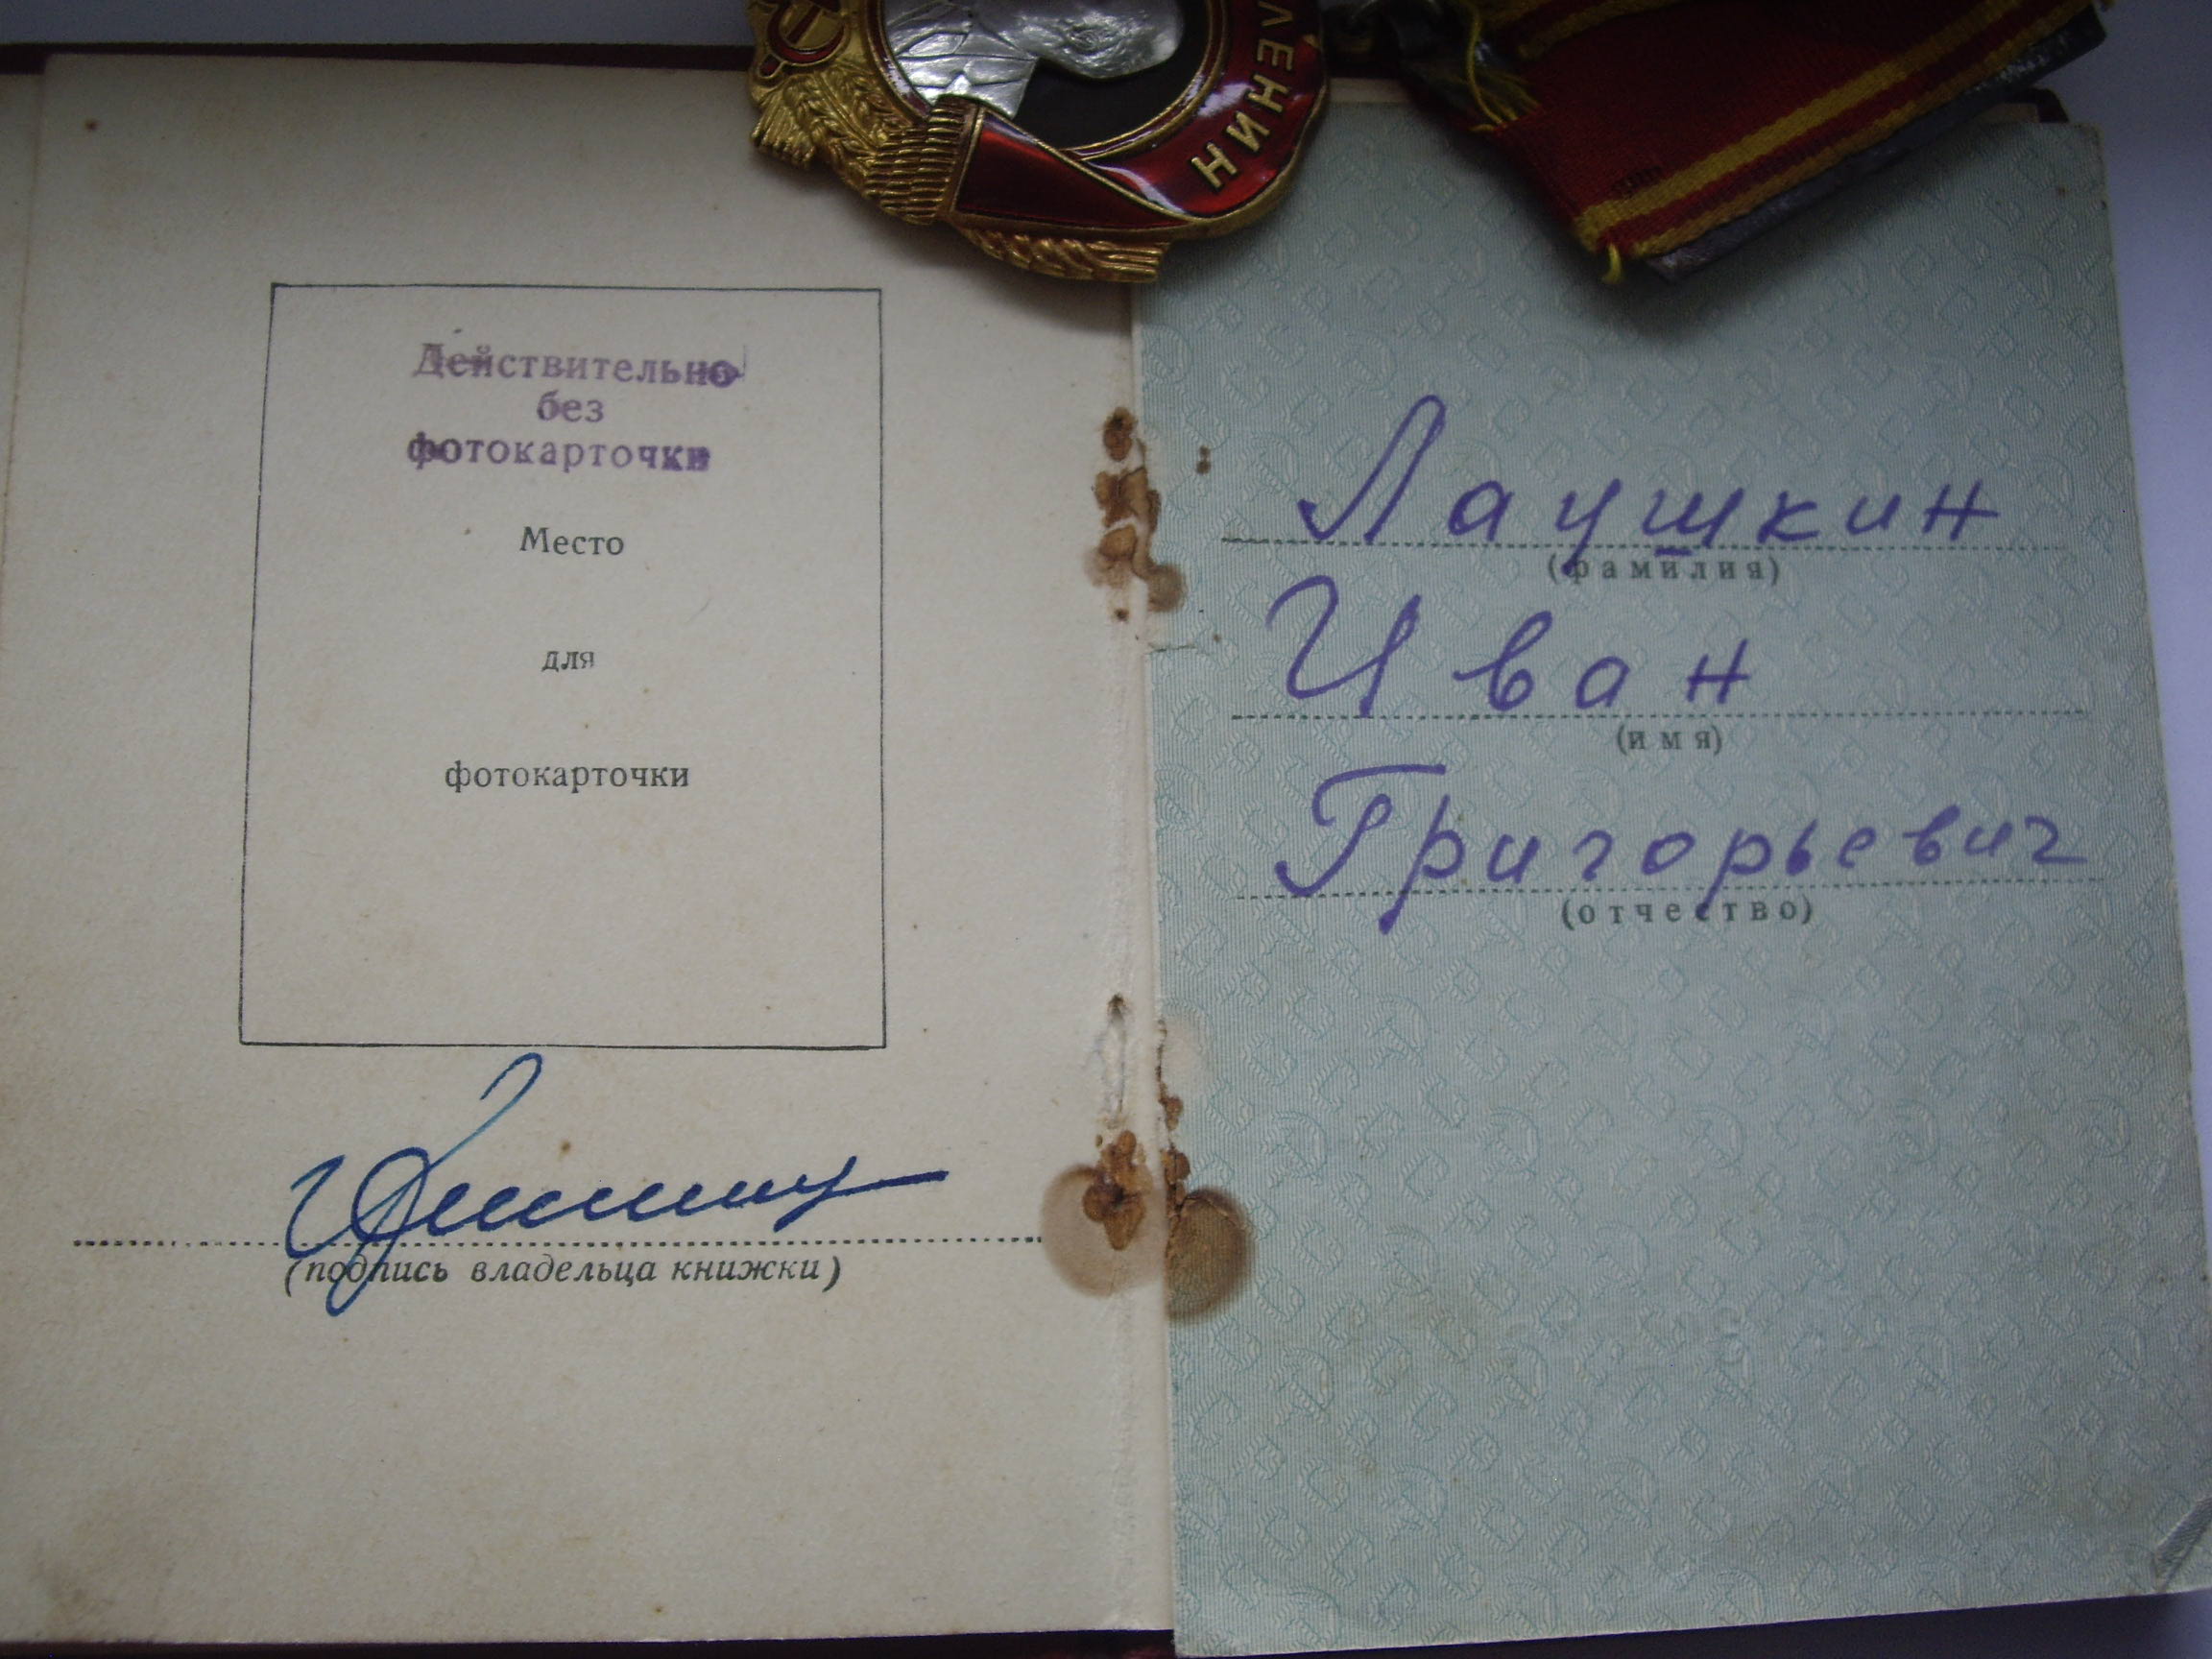 ЛЕНИН
Действительно
без
фотокарточки
Место
для
фотокарточки
(подпись владельца книжки)
Лаушкин
(фамилия)
Иван
(имя)
Григорьевич
(отчество)